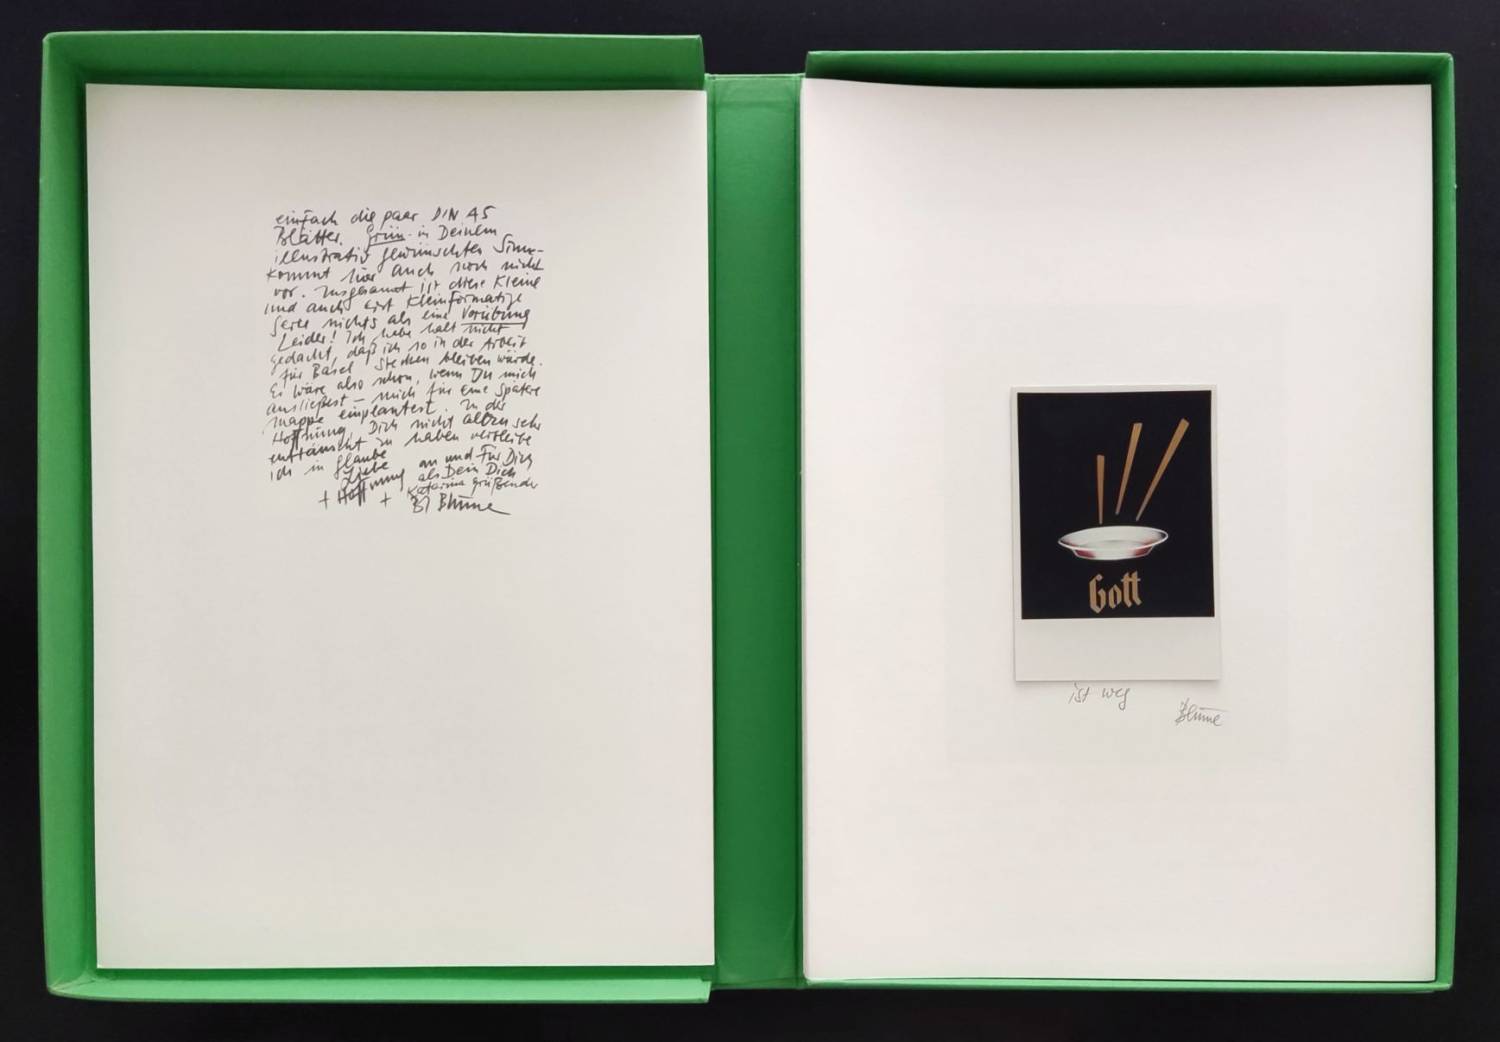 einfach die paar DIN A5
Blätter. Grün in Deinem
illustrativ gewünschten Sinn-
kommt hier auch noch nicht
vor. Insgesamt ist diese kleine
und auch erst kleinformatige
Serie nichts als eine Vorübung
Leider! Ich habe halt nicht
gedacht, daß ich so in der Arbeit
für Basel stecken bleiben würde.
Es wäre also schön, wenn Du mich
ausließest – mich für eine spätere
Mappe einplantest. In der
Hoffnung, Dich nicht allzu sehr
enttäuscht zu haben verbleibe
ich in Glaube
Liebe an und Für Dich
+ Hoffnung als Dein Dich
+ grüßender
Blume
Gott
ist weg
Blume